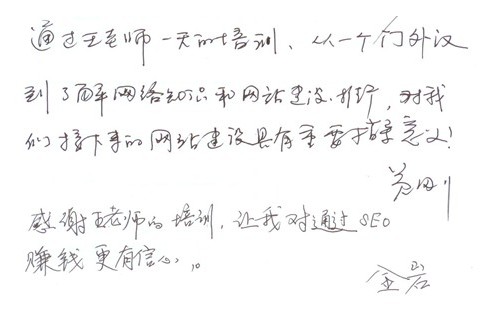 通过王老师一天的培训，从一个门外汉
到了解网络知识和网站建设、推广，对我
们接下来的网站建设具有重要指导意义！
感谢王老师的培训，让我对通过SEO
赚钱更有信心。
金岩